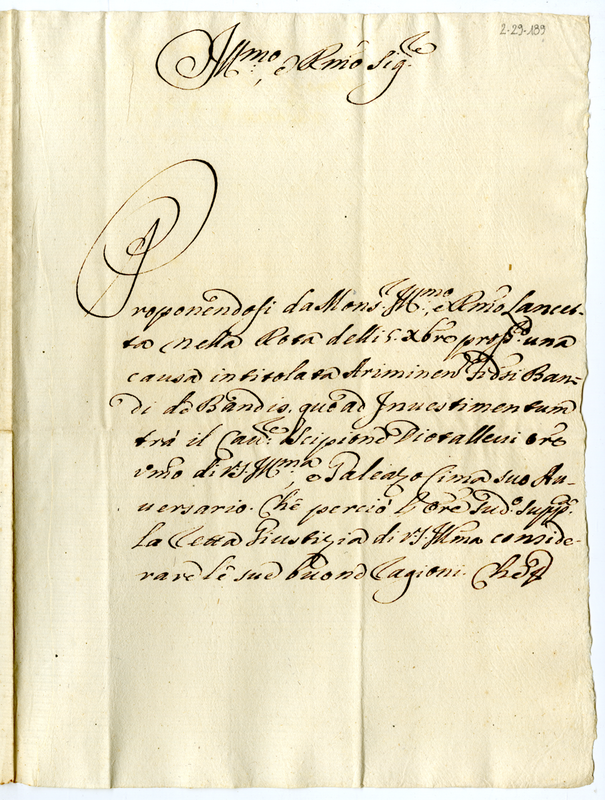 2-29-189
Illmo, e Rmo Sigre
Proponendosi da Mons. Illmo, e Rmo Lancet-
ta nella Rota delli 5. Xbre pross.o una
causa intitolata Ariminen Fideicõi Ban-
di de Bandis. quoad Investimentum
trà il Cau.re Scipione Diotalleui Ore
vmo di VS. Illma, e Galeazo Cima suo Au-
uersario. Che perciò l'Ore sud.o supp.ca
la retta Giustizia di VS. Illma conside-
rare le sue buone ragioni. Che